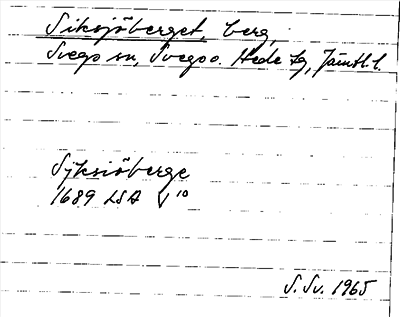 Siksjöberget, berg,
Svegs sn, Svegs o. Hede tg, Jämtl. l.
Sjksiöberge
1689 LSA V 10
S. Sv. 1965